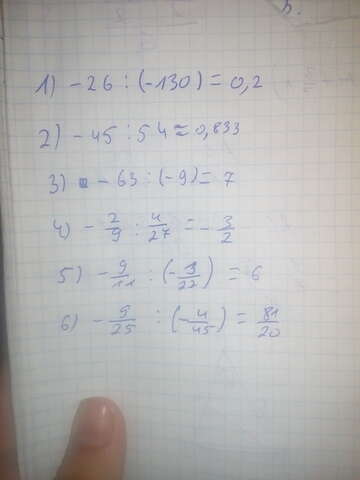 1) - 26 : (-130) = 0,2
2) - 45 : 54 ≈ 0,833
3) - 63 : (-9) = 7
4) - 2/9 : 4/27 = - 3/2
5) - 9/11 : (- 3/22) = 6
6) - 9/25 : (- 4/45) = 81/20